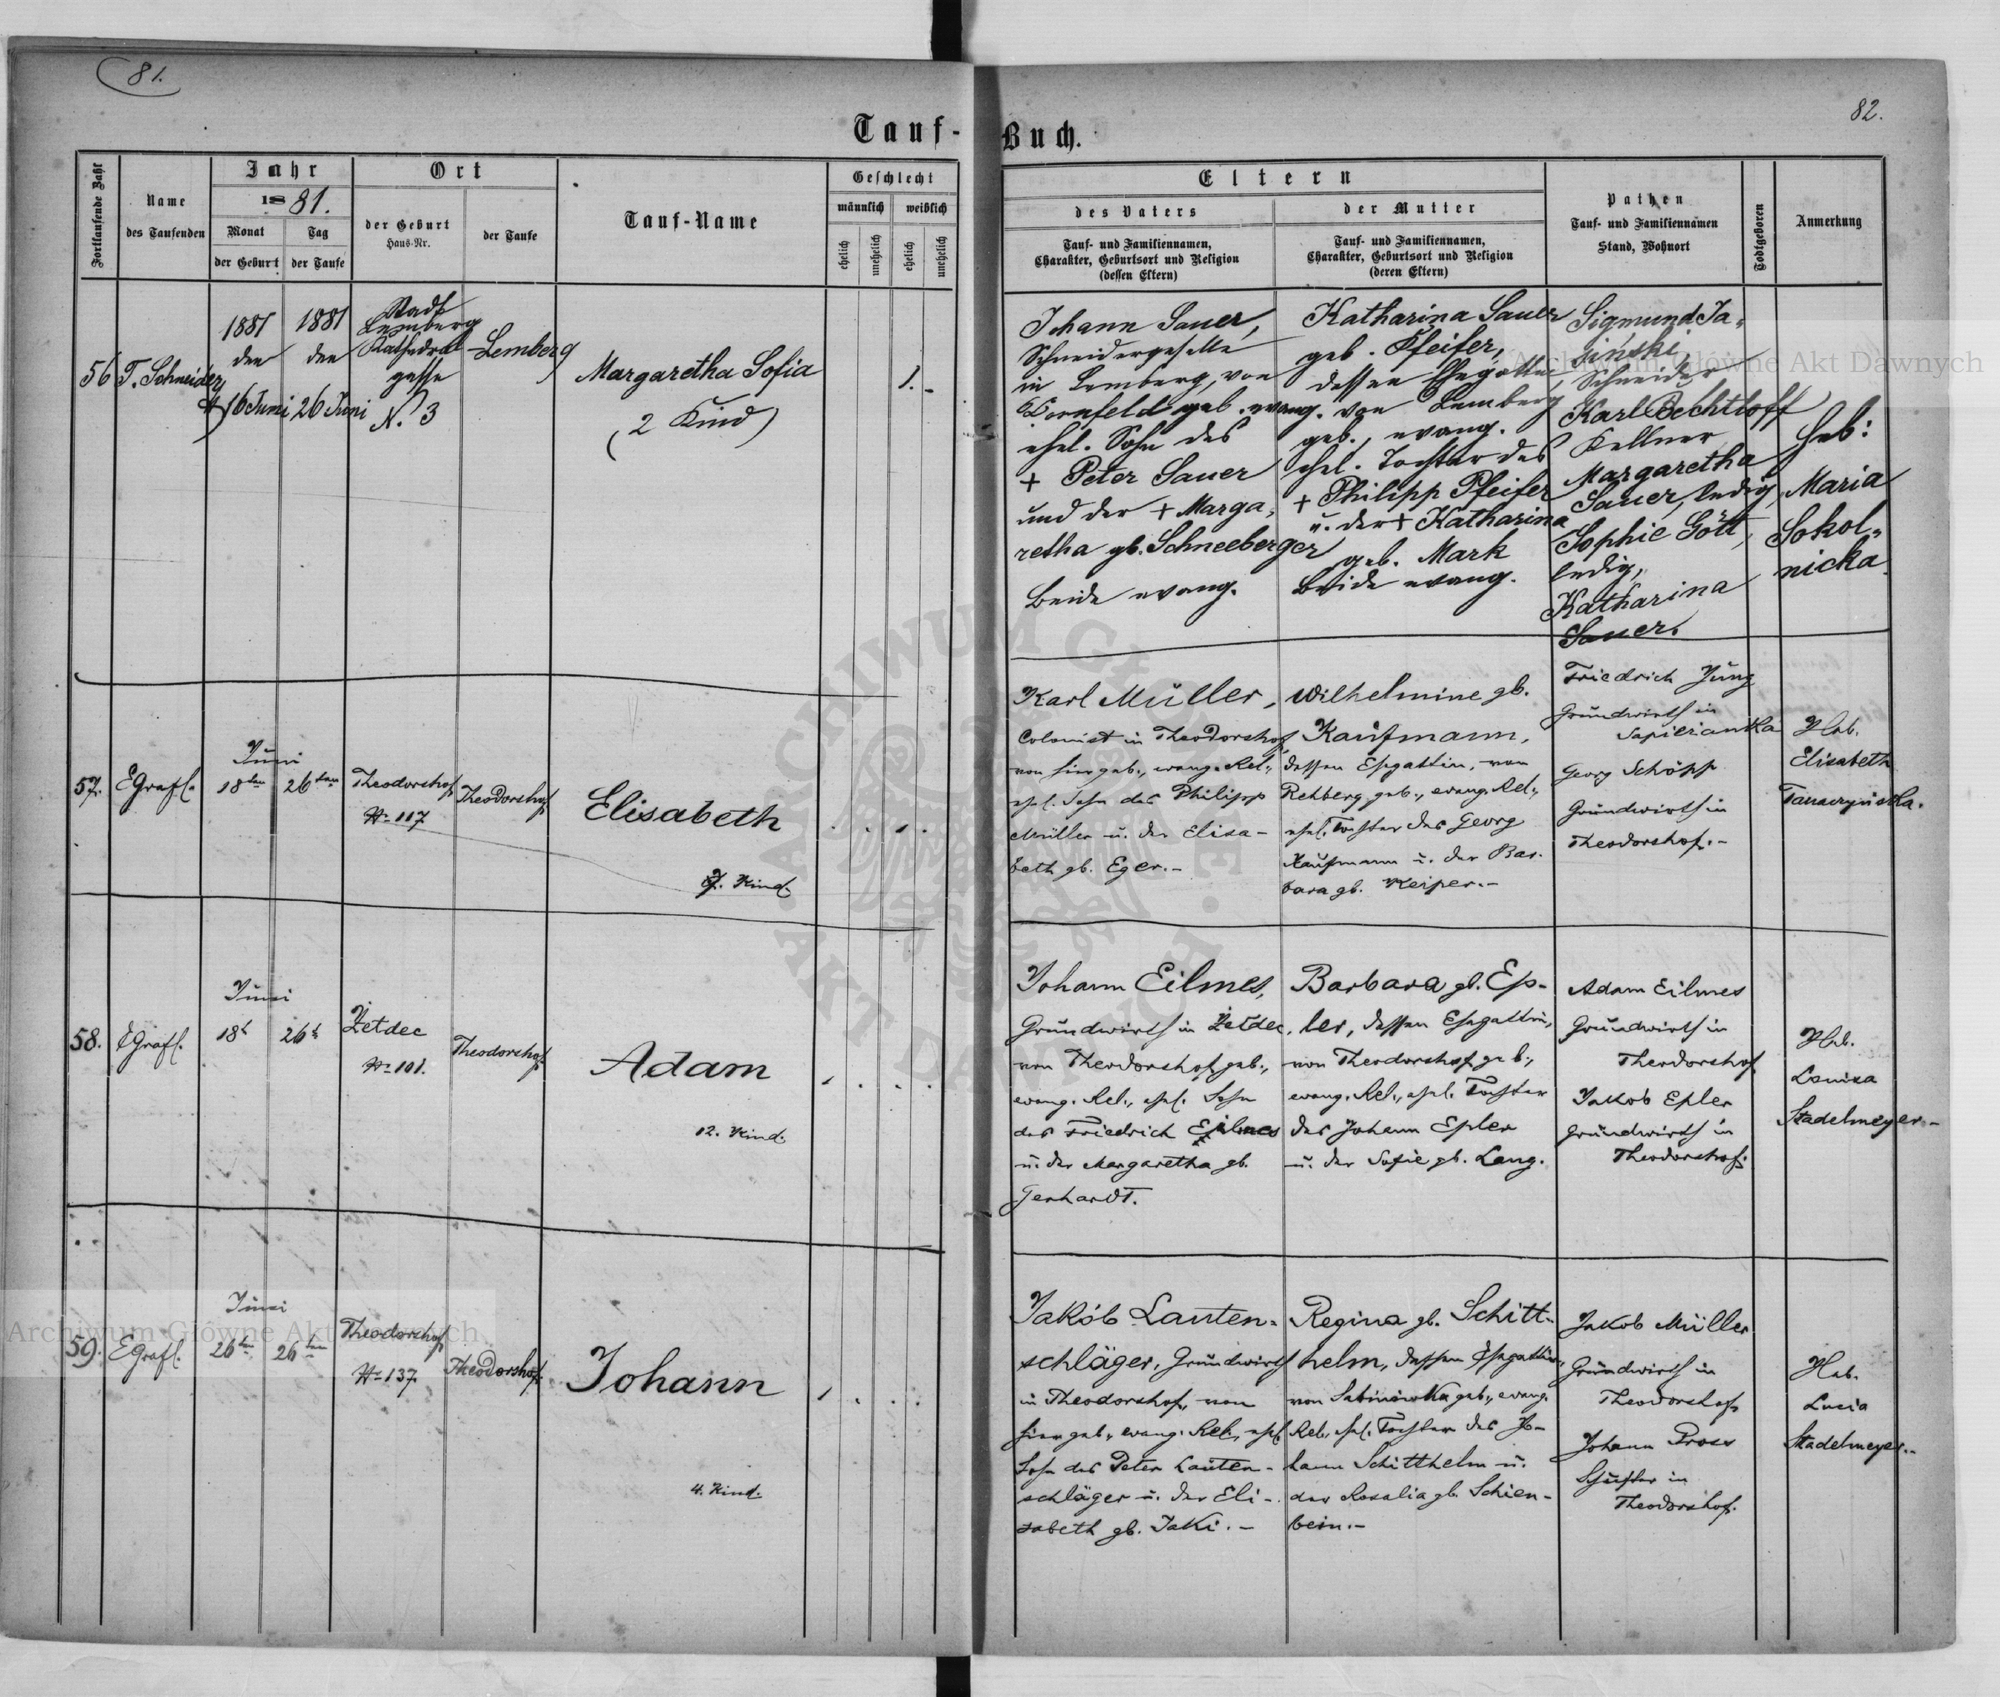 81.
82.
Tauf-
Buch.
Fortlaufende Zahl
Name
des Taufenden
Jahr
1881.
Monat
der Geburt
Tag
der Taufe
Ort
der Geburt
Haus-Nr.
der Taufe
Tauf-Name
Geschlecht
männlich
weiblich
ehelich
unehelich
ehelich
unehelich
Eltern
des Vaters
Tauf- und Familiennamen,
Charakter, Geburtsort und Religion
(dessen Eltern)
der Mutter
Tauf- und Familiennamen,
Charakter, Geburtsort und Religion
(deren Eltern)
Pathen
Tauf- und Familiennamen
Stand, Wohnort
Todtgeboren
Anmerkung
56
T. Schneider
1881
den
16 Juni
1881
den
26 Juni
Stadt
Lemberg
Kathedral
gasse
N. 3
Lemberg
Margaretha Sofia
(2 Kind)
1.
Johann Sauer,
Schneidergeselle
in Lemberg, von
Dornfeld geb. evang.
ehel. Sohn des
+ Peter Sauer
und der + Marga-
retha gb. Schneeberger
Beide evang.
Katharina Sauer
geb. Pfeifer,
dessen Ehegattin,
von Lemberg
geb., evang.
ehel. Tochter des
+ Philipp Pfeifer
u. der + Katharina
geb. Mark
Beide evang.
Sigmund Ja-
sinski,
Schneider
Karl Bechtloff
Kellner
Margaretha
Sauer, ledig,
Sophie Gött,
ledig,
Katharina
Sauer.
Heb:
Maria
Sokol-
nicka
57.
EGrafl.
Juni
18ten
26ten
Theodorshof
N= 117
Theodorshof
Elisabeth
7. Kind.
Karl Müller,
Colonist in Theodorshof,
von hier geb., evang. Rel.,
ehel. Sohn des Philipp
Müller u. der Elisa-
beth gb. Eger.-
Wilhelmine gb.
Kaufmann,
dessen Ehgattin, von
Rehberg geb., evang. Rel.,
ehel. Tochter des Georg
Kaufmann u. der Bar-
bara gb. Keiper.-
Friedrich Jung
Grundwirth in
Sapieżanka
Georg Schöpp
Grundwirth in
Theodorshof.-
Heb.
Elisabeth
58.
EGrafl.
Juni
18t
26t
Żetdec
N= 101.
Theodorshof
Adam
12. Kind.
Johann Eilmes,
Grundwirth in Żetdec,
von Theodorshof geb.,
evang. Rel., ehel. Sohn
des Friedrich Eilmes
u. der Margaretha gb.
Gerhardt.
Barbara gb. Ep-
ler, dessen Ehgattin,
von Theodorshof geb.,
evang. Rel., ehel. Tochter
des Johann Epler
u. der Sofie gb. Lang.
Adam Eilmes
Grundwirth in
Theodorshof
Jakob Epler
Grundwirth in
Theodorshof.
Heb.
Louisa
Stadelmeyer.-
59.
EGrafl.
Juni
26ten
26ten
Theodorshof
N= 137.
Theodorshof
Johann
4. Kind.
Jakob Lauten-
schläger, Grundwirth
in Theodorshof, von
hier geb., evang. Rel., ehel.
Sohn des Peter Lauten-
schläger u. der Eli-
sabeth gb. Jaki.-
Regina gb. Schitt-
helm, dessen Ehgattin,
von Sabinowka geb., evang.
Rel., ehel. Tochter des Jo-
hann Schitthelm u.
der Rosalia gb. Schien-
bein.-
Jakob Müller
Grundwirth in
Theodorshof
Johann Pross
Schuster in
Theodorshof.
Heb.
Lucia
Stadelmeyer.-
Archiwum Główne Akt Dawnych
Archiwum Główne Akt Dawnych
ARCHIWUM GŁÓWNE AKT DAWNYCH